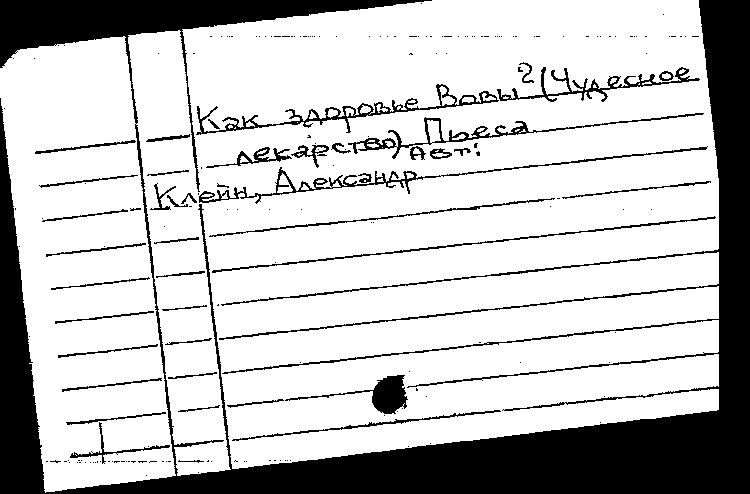 Как здоровье Вовы? (Чудесное
лекарство) Пьеса
Авт:
Клейн, Александр